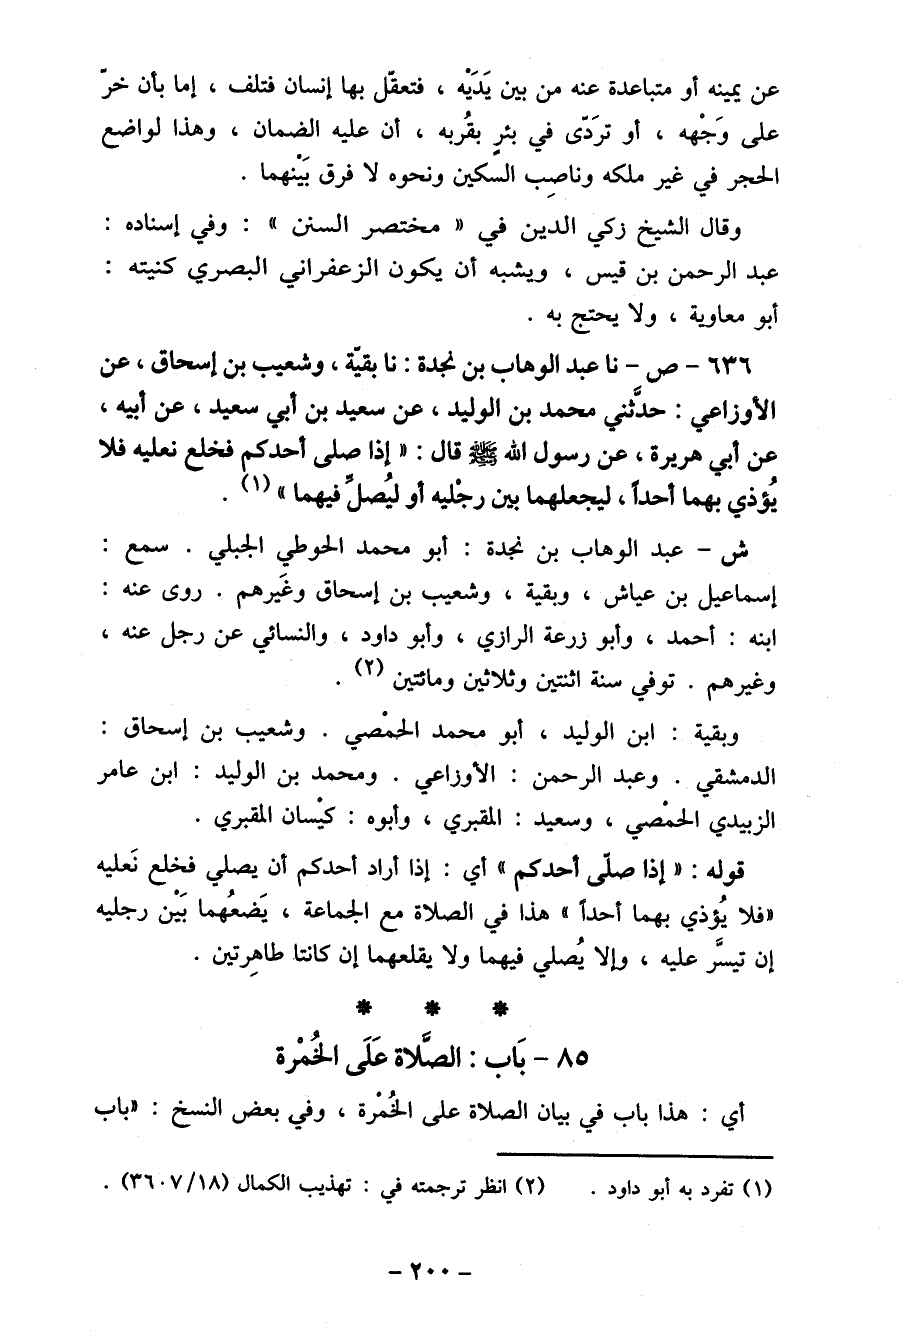 عن يمينه أو متباعدة عنه من بين يَدَيْه ، فتعقّل بها إنسان فتلف ، إما بأن خرّ
على وَجْهه ، أو تَردّى في بئرٍ بقُربه ، أن عليه الضمان ، وهذا لواضع
الحجر في غير ملكه وناصِب السكين ونحوه لا فرق بَيْنهما .
وقال الشيخ زكي الدين في « مختصر السنن » : وفي إسناده :
عبد الرحمن بن قيس ، ويشبه أن يكون الزعفراني البصري كنيته :
أبو معاوية ، ولا يحتج به .
٦٣٦ - ص - نا عبد الوهاب بن نجدة : نا بقيّة ، وشعيب بن إسحاق ، عن
الأوزاعي : حدَّثني محمد بن الوليد ، عن سعيد بن أبي سعيد ، عن أبيه ،
عن أبي هريرة ، عن رسول الله ﷺ قال : « إذا صلى أحدكم فخلع نعليه فلا
يُؤذي بهما أحداً ، ليجعلهما بين رجْليه أو ليُصلِّ فيهما » (١) .
ش - عبد الوهاب بن نجدة : أبو محمد الحوطي الجبلي . سمع :
إسماعيل بن عياش ، وبقية ، وشعيب بن إسحاق وغَيرهم . روى عنه :
ابنه : أحمد ، وأبو زرعة الرازي ، وأبو داود ، والنسائي عن رجل عنه ،
وغيرهم . توفي سنة اثنتين وثلاثين ومائتين (٢) .
وبقية : ابن الوليد ، أبو محمد الحمْصي . وشعيب بن إسحاق :
الدمشقي . وعبد الرحمن : الأوزاعي . ومحمد بن الوليد : ابن عامر
الزبيدي الحمْصي ، وسعيد : المقبري ، وأبوه : كيْسان المقبري .
قوله : « إذا صلّى أحدكم » أي : إذا أراد أحدكم أن يصلي فخلع نَعليه
«فلا يُؤذي بهما أحداً » هذا في الصلاة مع الجماعة ، يَضعُهما بَيْن رجليه
إن تيسَّر عليه ، وإلا يُصلي فيهما ولا يقلعهما إن كانتا طاهِرتين .
* * *
٨٥ - بَاب : الصَّلاة عَلَى الخُمْرة
أي : هذا باب في بيان الصلاة على الخُمْرة ، وفي بعض النسخ : «باب
(١) تفرد به أبو داود . (٢) انظر ترجمته في : تهذيب الكمال (١٨/ ٣٦٠٧) .
- ٢٠٠ -